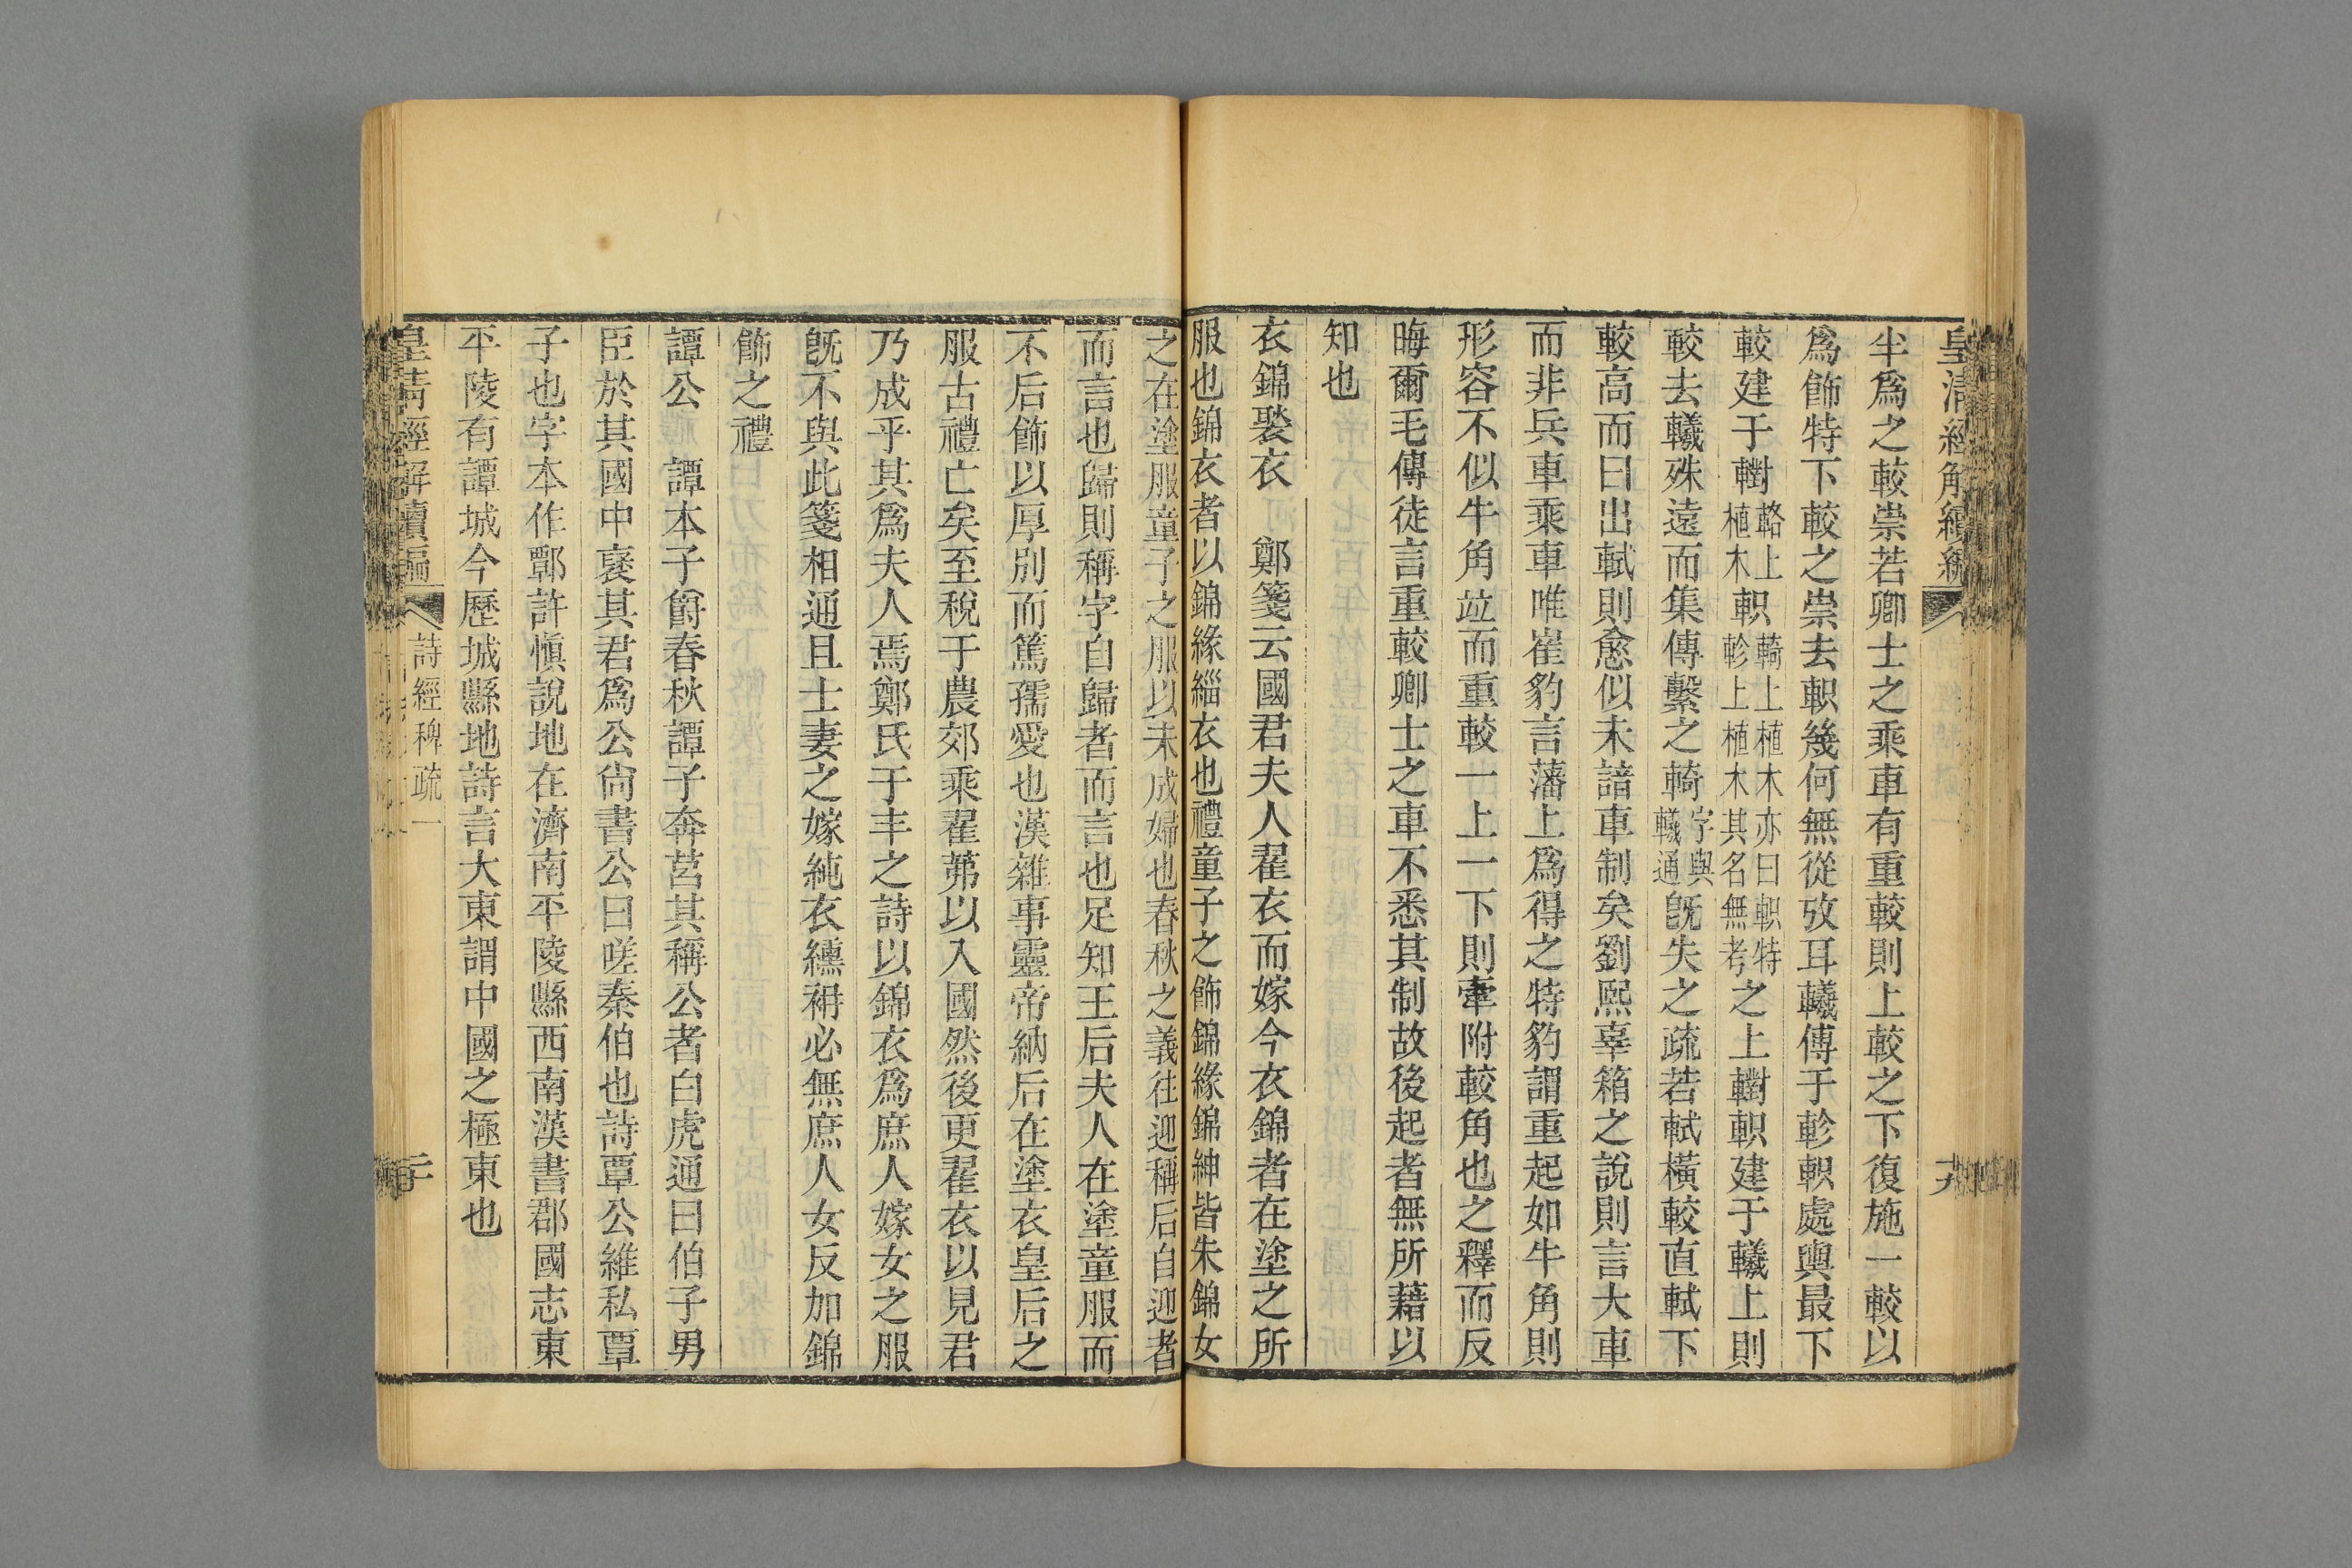 皇清經解續編
十九
尘爲之較崇若卿士之乘車有重較則上較之下復施一較以
爲飾特下較之崇去軹幾何無從攷耳轙傅于軫軹處輿最下
較建于轛輅上植木軹輢上植木亦曰軹特軫上植木其名無考之上轛軹建于轙上則
較去轙殊遠而集傳繫之輢字與轙通旣失之疏若軾橫較直軾下
較高而曰出軾則愈似未諳車制矣劉熙辜箱之說則言大車
而非兵車乘車唯崔豹言藩上爲得之特豹謂重起如牛角則
形容不似牛角竝而重較一上一下則牽附較角也之釋而反
晦爾毛傳徒言重較卿士之車不悉其制故後起者無所藉以
知也
衣錦褧衣　鄭箋云國君夫人翟衣而嫁今衣錦者在塗之所
服也錦衣者以錦緣緇衣也禮童子之飾錦緣錦紳皆朱錦女
之在塗服童子之服以未成婦也春秋之義往迎稱后自迎者
而言也歸則稱字自歸者而言也足知王后夫人在塗童服而
不后飾以厚別而篤孺愛也漢雜事靈帝納后在塗衣皇后之
服古禮亡矣至稅于農郊乘翟茀以入國然後更翟衣以見君
乃成乎其爲夫人焉鄭氏于丰之詩以錦衣爲庶人嫁女之服
旣不與此箋相通且士妻之嫁純衣纁袡必無庶人女反加錦
飾之禮
譚公　譚本子爵春秋譚子奔莒其稱公者白虎通曰伯子男
臣於其國中褒其君爲公尙書公曰嗟秦伯也詩覃公維私覃
子也字本作鄲許愼說地在濟南平陵縣西南漢書郡國志東
平陵有譚城今歷城縣地詩言大東謂中國之極東也
皇清經解續編
詩經稗疏一
二十